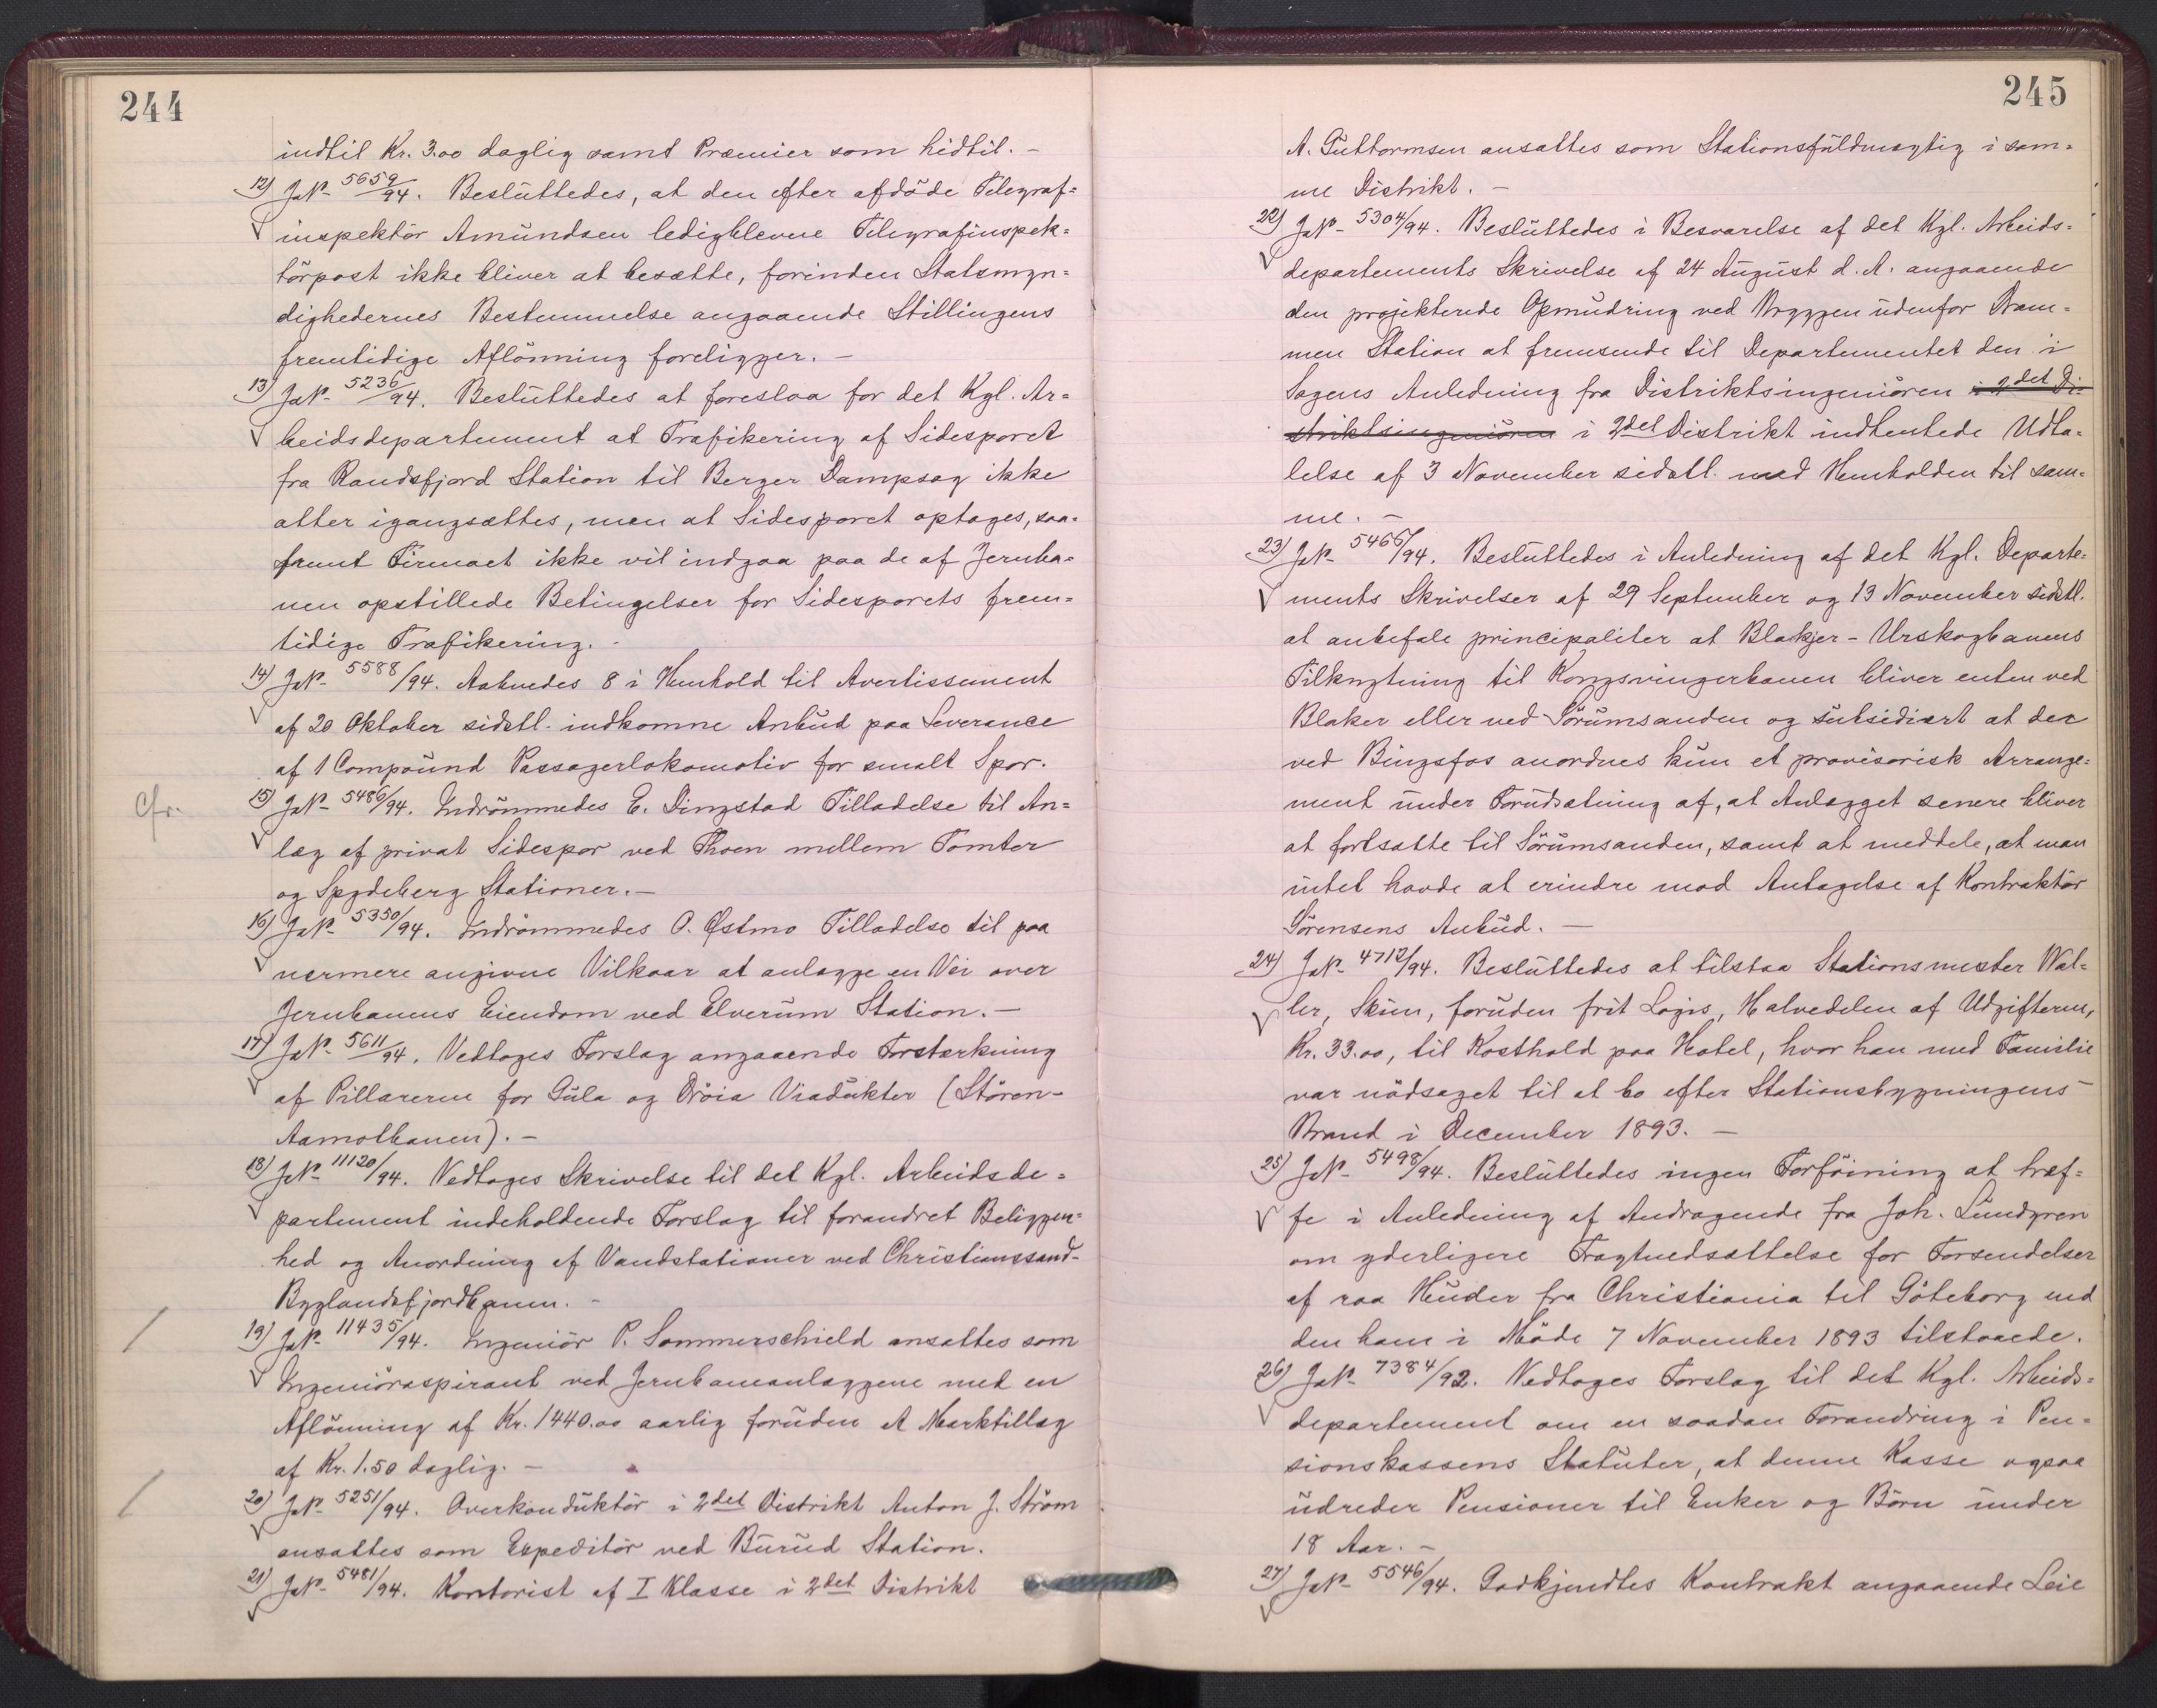 244
indtil Kr. 3.00 daglig samt Præmier som hidtil. –
12) J№ 5659/94. Beslüttedes, at den efter afdöde Telegraf=
inspektör Amündsen ledigblevne Telegrafinspek=
törpost ikke bliver at besætte, forinden Statsmyn=
dighedernes Bestemmelse angaaende Stillingens
fremtidige Aflönning foreligger. –
13) J№ 5236/94. Beslüttedes at foreslaa for det Kgl. Ar=
beidsdepartement at Trafikering af Sidesporet
fra Randsfjord Station til Berger Dampsag ikke
atter igangsættes, men at Sidesporet optages, saa=
fremt Firmaet ikke vil indgaa paa de af Jernba=
nen opstillede Betingelser for Sidesporets frem=
tidige Trafikering. -
14) J№ 5588/94. Aabnedes 8 i Henhold til Avertissement
af 20 Oktober sidstl. indkomne Anbüd paa Leverance
af 1 Compoünd Passagerlokomotiv for smalt Spor.
Cfr. 15) J№ 5486/94. Indrömmedes E. Dingstad Tilladelse til An=
læg af privat Sidespor ved Thoen mellem Tomter
og Spydeberg Stationer. –
16) J№ 5350/94. Indrömmedes O. Østmo Tilladelse til paa
nærmere angivne Vilkaar at anlægge en Vei over
Jernbanens Eiendom ved Elverüm Station. –
17) J№ 5611/94. Vedtoges Forslag angaaende Forstærkning
af Pillarerne for Güla og Dröia Viadükter (Stören-
Aamotbanen). –
18) J№ 11120/94. Vedtoges Skrivelse til det Kgl. Arbeidsde=
partement indeholdende Forslag til forandret Beliggen=
hed og Anordning af Vandstationer ved Christianssand-
Byglandsfjordbanen. -
19) J№ 11435/94. Ingeniör P. Sommerschield ansattes som
Ingeniöraspirant ved Jernbaneanlæggene med en
Aflönning af Kr. 1440.00 aarlig forüden et Marktillæg
af Kr. 1.50 daglig. –
20) J№ 5251/94. Overkondüktör i 2det Distrikt Anton J. Ström
ansattes som Expeditör ved Bürüd Station.
21) J№ 5481/94. Kontorist af I Klasse i 2det Distrikt
245
A. Güttormsen ansattes som Stationsfüldmægtig i sam=
me Distrikt. –
22) J№ 5304/94. Beslüttedes i Besvarelse af det Kgl. Arbeids=
departements Skrivelse af 24 Aügüst d. A. angaaende
den projekterede Opmüdring ved Bryggen üdenfor Dram=
men Station at fremsende til Departementet den i
Sagens Anledning fra Distriktsingeniören i 2det Di-
striktsingeniören i 2det Distrikt indhentede Udta=
lelse af 3 November sidstl. med Henholden til sam=
me. –
23) J№ 5466/94. Beslüttedes i Anledning af det Kgl. Departe=
ments Skrivelser af 29 September og 13 November sidstl.
at anbefale principaliter at Blakjer-Urskogbanens
Tilknytning til Kongsvingerbanen bliver enten ved
Blaker eller ved Sörümsanden og sübsidiært at der
ved Bingsfos anordnes kün et provisorisk Arrange=
ment ünder Forüdsætning af, at Anlægget senere bliver
at fortsætte til Sörümsanden, samt at meddele, at man
intet havde at erindre mod Antagelse af Kontraktör
Sörensens Anbüd. –
24) J№ 4712/94. Beslüttedes at tilstaa Stationsmester Wal=
ler, Skien, forüden frit Logis, Halvedelen af Udgifterne,
Kr. 33.00, til Kosthold paa Hotel, hvor han med Familie
var nödsaget til at bo efter Stationsbygningens
Brand i December 1893. –
25) J№ 5498/94. Beslüttedes ingen Forföining at træf=
fe i Anledning af Andragende fra Joh. Lündgren
om yderligere Fragtnedsættelse for Forsendelser
af raa Hüder fra Christiania til Göteborg end
den ham i Möde 7 November 1893 tilstaaede.
26) J№ 7384/92. Vedtoges Forslag til det Kgl. Arbeids=
departement om en saadan Forandring i Pen=
sionskassens Statüter, at denne Kasse ogsaa
üdreder Pensioner til Enker og Börn ünder
18 Aar. –
27) J№ 5546/94. Godkjendtes Kontrakt angaaende Leie